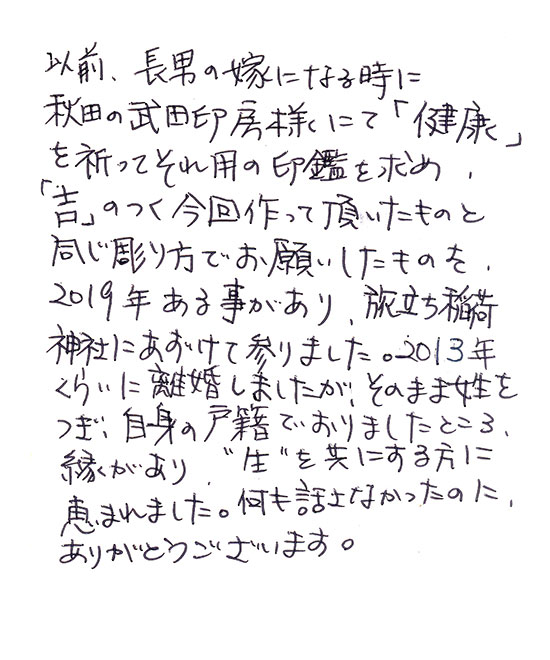 以前、長男の嫁になる時に
秋田の武田印房様にて「健康」
を祈ってそれ用の印鑑を求め、
「吉」のつく今回作って頂いたものと
同じ彫り方でお願いしたものを、
2019年ある事があり、旅立ち稲荷
神社にあずけて参りました。2013年
くらいに離婚しましたが、そのまま姓を
つぎ、自身の戸籍でおりましたところ、
縁があり、"生"を共にする方に
恵まれました。何も話さなかったのに、
ありがとうございます。